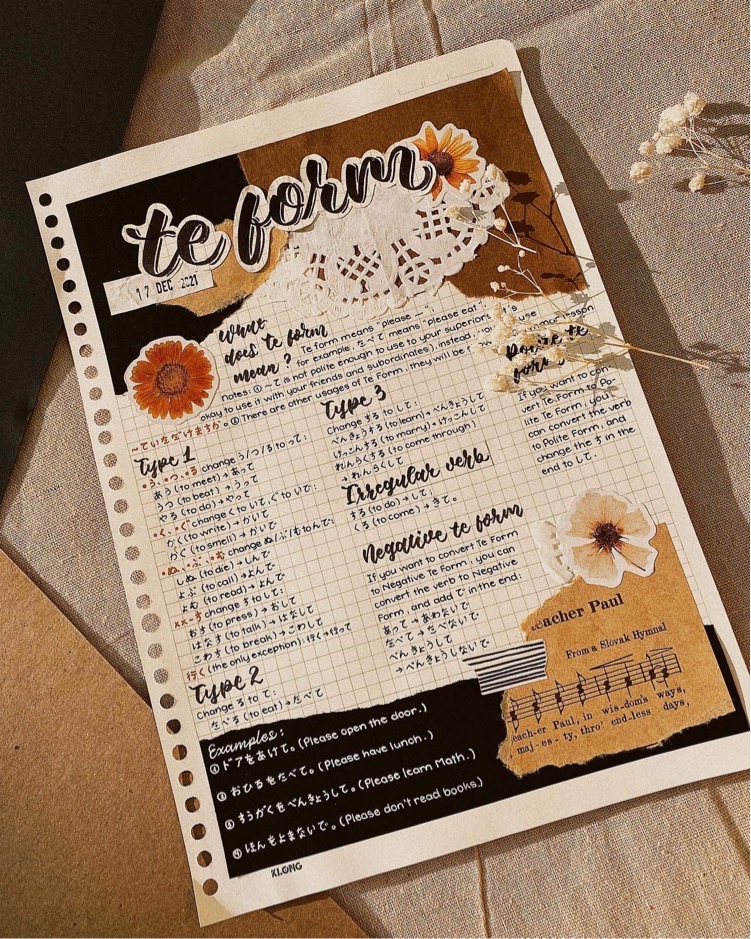 te form
17 DEC 2021
What
does te form
mean?
Te form means "please ~".
for example, たべて means "please eat".
notes: ① ~て is not polite enough to use to your superior
okay to use it with your friends and subordinates), instead,
use
~ていただけますか。② There are other usages of Te Form, they will be
lesson
Type 1
・う, つ, る change う/つ/る to って:
あう (to meet) → あって
うつ (to beat) → うって
やる (to do) → やって
・く, ぐ change く to いて, ぐ to いで:
かく (to write) → かいて
かぐ (to smell) → かいで
・ぬ, ぶ, む change ぬ/ぶ/む to んで:
しぬ (to die) → しんで
よぶ (to call) → よんで
よむ (to read) → よんで
××-す change す to して:
おす (to press) → おして
はなす (to talk) → はなして
こわす (to break) → こわして
行く (the only exception): 行く → 行って
Type 2
Change る to て:
たべる (to eat) → たべて
Type 3
Change する to して:
べんきょうする (to learn) → べんきょうして
けっこんする (to marry) → けっこんして
れんらくする (to come through)
→ れんらくして
Irregular verb
する (to do) → して;
くる (to come) → きて。
Negative te form
If you want to convert Te Form
to Negative Te Form, you can
convert the verb to Negative
Form, and add で in the end:
あって → あわないで
たべて → たべないで
べんきょうして
→ べんきょうしないで
Polite te
form
If you want to con-
vert Te Form to Po-
lite Te Form, you
can convert the verb
to Polite Form, and
change the す in the
end to して.
eacher Paul
From a Slovak Hymnal
each-er Paul, in wis-dom's ways,
maj - es - ty, thro' end-less days,
Examples:
① ドアをあけて。(Please open the door.)
② おひるをたべて。(Please have lunch.)
③ すうがくをべんきょうして。(Please learn Math.)
④ ほんをよまないで。(Please don't read books.)
KLONG